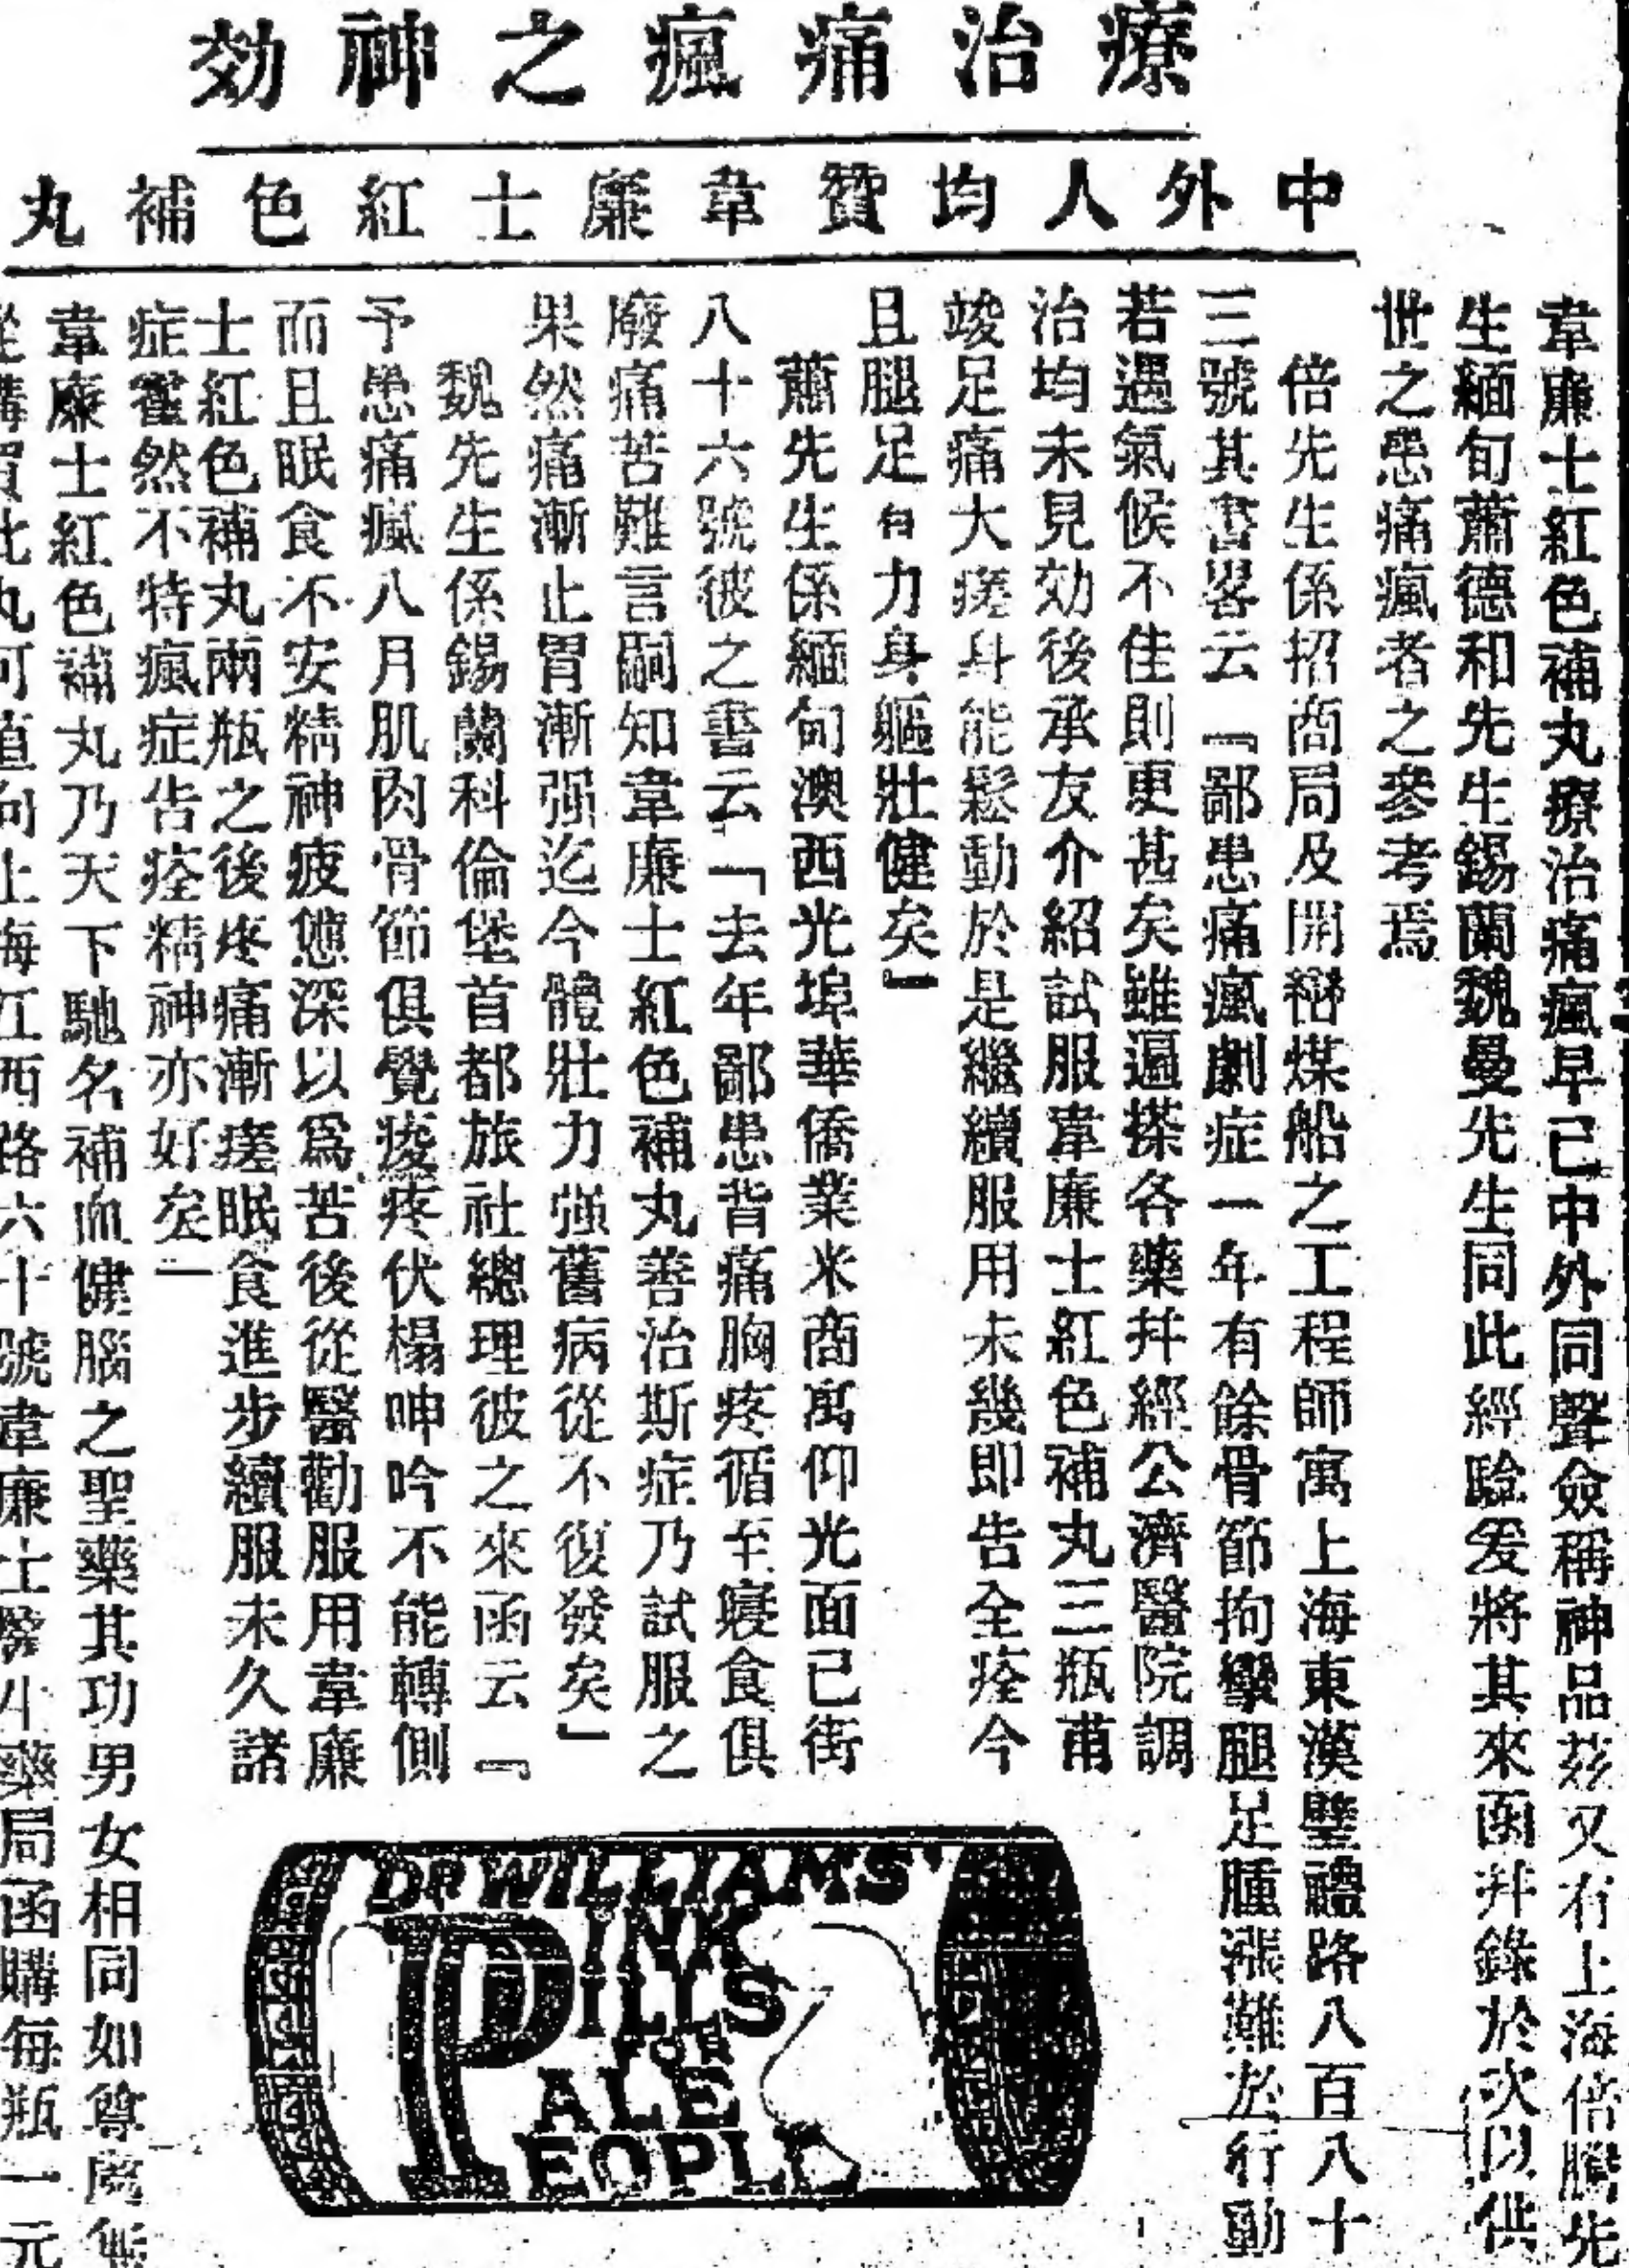 療治痛瘋之神効
中外人均贊韋廉士紅色補丸
韋廉士紅色補丸療治痛瘋早已中外同聲僉稱神品茲又有上海倍騰先
生緬甸蕭德和先生錫蘭魏曼先生同此經驗爰將其來函幷錄於次以供
世之患痛瘋者之參考焉
倍先生係招商局及開灤煤船之工程師寓上海東漢璧禮路八百八十
三號其書畧云『鄙患痛瘋劇症一年有餘骨節拘攣腿足腫漲難於行動
若遇氣候不佳則更甚矣雖遍搽各藥幷經公濟醫院調
治均未見効後承友介紹試服韋廉士紅色補丸三瓶甫
竣足痛大瘥身能鬆動於是繼續服用未幾即告全痊今
且腿足有力身軀壯健矣』
蕭先生係緬甸澳西光埠華僑業米商寓仰光面已街
八十六號彼之書云「去年鄙患背痛胸疼循至寢食俱
廢痛苦難言嗣知韋廉士紅色補丸善治斯症乃試服之
果然痛漸止胃漸强迄今體壯力强舊病從不復發矣」
魏先生係錫蘭科倫堡首都旅社總理彼之來函云『
予患痛瘋八月肌肉骨節俱覺痠疼伏榻呻吟不能轉側
而且眠食不安精神疲憊深以爲苦後從醫勸服用韋廉
士紅色補丸兩瓶之後疼痛漸瘥眠食進步續服未久諸
症霍然不特瘋症告痊精神亦好矣』
韋廉士紅色補丸乃天下馳名補血健腦之聖藥其功男女相同如尊處無
從購買此丸可直向上海江西路六十號韋廉士醫生藥局函購每瓶一元
DR WILLIAMS'
PINK
PILLS
FOR
PALE
PEOPLE